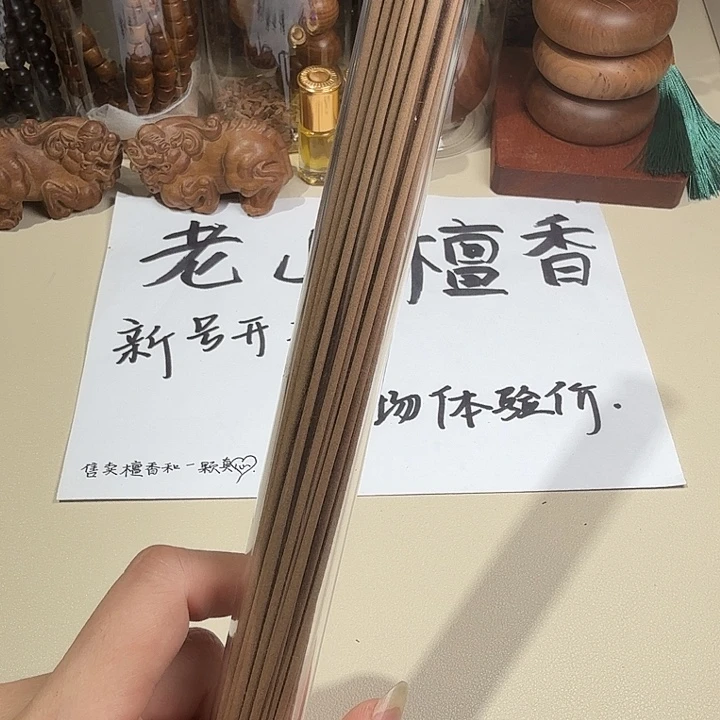 老 檀香
新号开
体验价.
售卖檀香和一颗真心